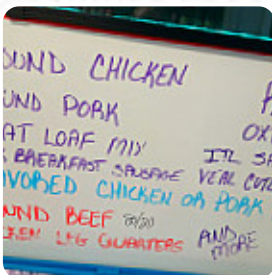 OUND CHICKEN
UND PORK
AT LOAF MIX
BREAKFAST SAUSAGE
AVORED CHICKEN OR PORK
UND BEEF 80/20
KEN LEG QUARTERS
OX
ITL SA
VEAL CUT
AND
MORE